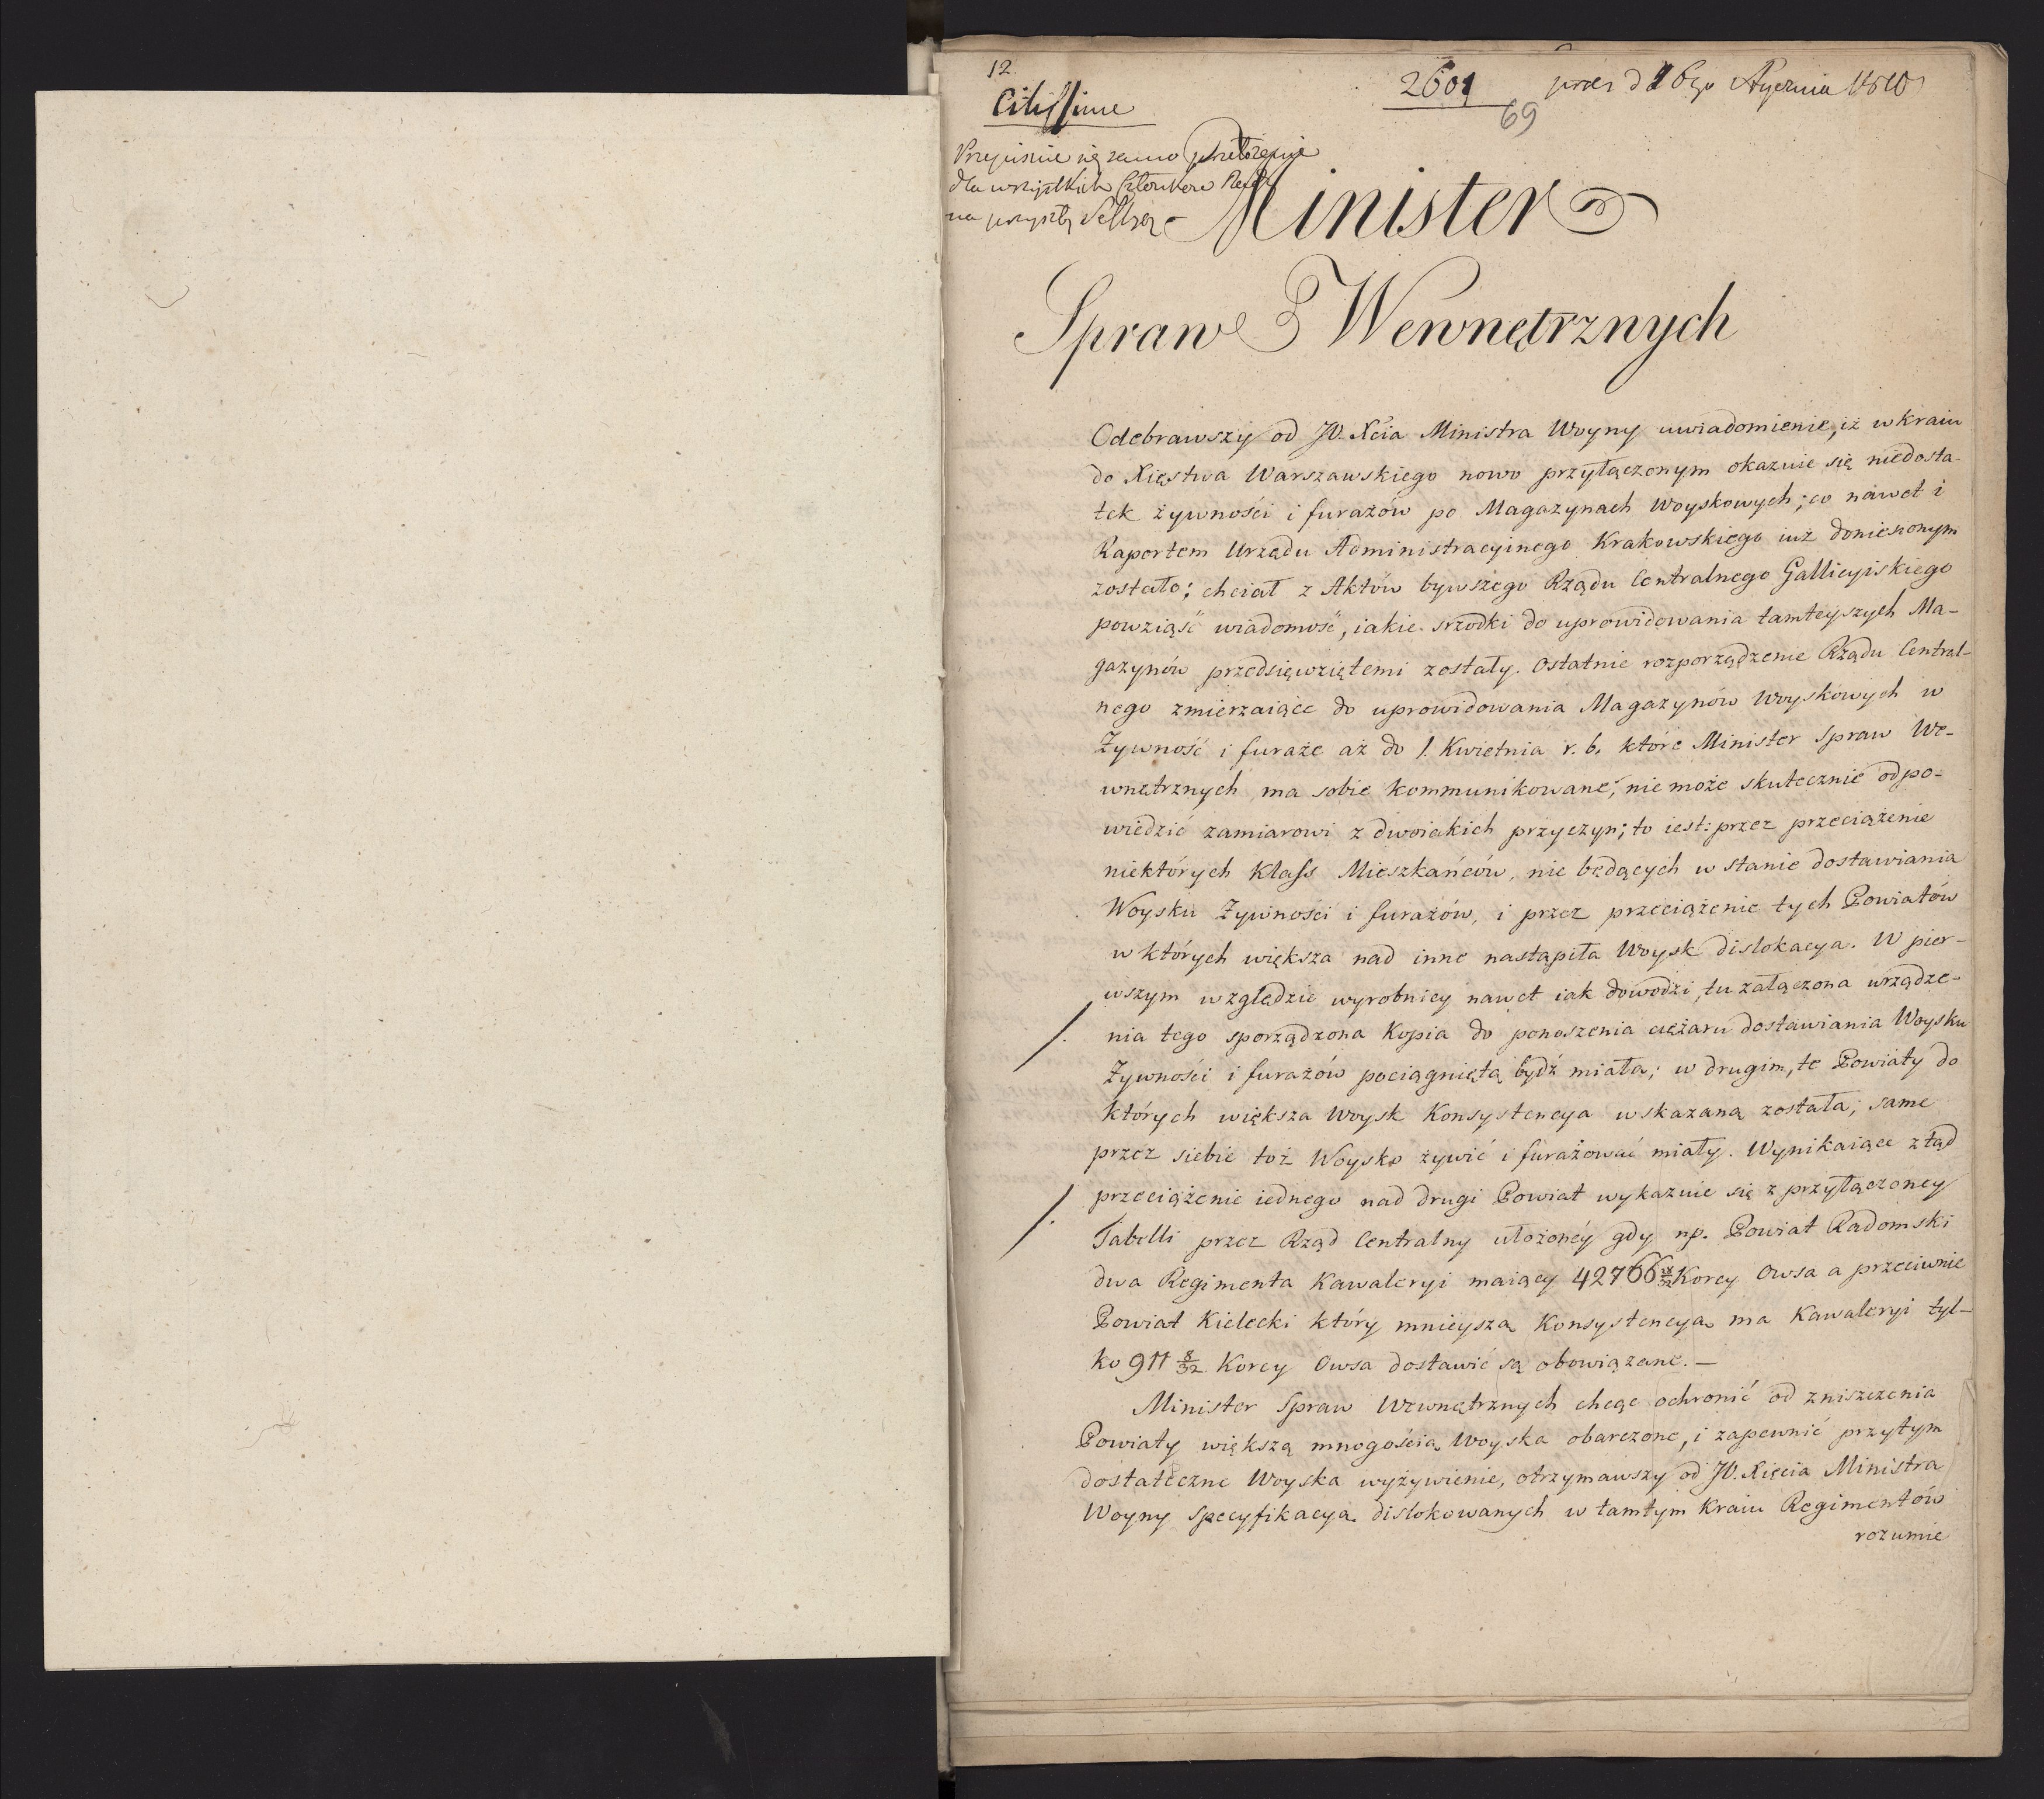 12
Citissime
2601
69
pres d 16go Stycznia 1810
dla wszystkich Członków Rady
na przyszłą Sessyą
Minister
Spraw Wewnętrznych
Odebrawszy od JO. Xcia Ministra Woyny uwiadomienie, iż w kraiu
do Xięstwa Warszawskiego nowo przyłączonym okazuie się niedosta-
tek żywności i furażów po Magazynach Woyskowych; co nawet i
Raportem Urzędu Administracyinego Krakowskiego iuż doniesionym
zostało; chciał z Aktów bywszego Rządu Centralnego Gallicyiskiego
powziąść wiadomość, iakie srzodki do uprowidowania tamteyszych Ma-
gazynów przedsięwziętemi zostały. Ostatnie rozporządzenie Rządu Central-
nego zmierzaiące do uprowidowania Magazynów Woyskowych w
Żywność i furaże aż do 1. Kwietnia r. b. które Minister Spraw We-
wnętrznych ma sobie kommunikowane, nie może skutecznie odpo-
wiedzić zamiarowi z dwoiakich przyczyn; to iest: przez przeciążenie
niektórych Klass Mieszkańców, nie będących w stanie dostawiania
Woysku Żywności i furażów, i przez przeciążenie tych Powiatów
w których większa nad inne nastąpiła Woysk dislokacya. W pier-
wszym względzie wyrobnicy nawet iak dowodzi, tu załączona urządze-
nia tego sporządzona Kopia do ponoszenia ciężaru dostawiania Woysku
Żywności i furażów pociągniętą bydź miała; w drugim, te Powiaty do
których większa Woysk Konsystencya wskazaną została; same
przez siebie toż Woysko żywić i furażować miały. Wynikaiące ztąd
przeciążenie iednego nad drugi Powiat wykazuie się z przyłączoney
Tabelli przez Rząd Centralny ułożonéy gdy np. Powiat Radomski
dwa Regimenta Kawaleryi maiący 42766 Korcy Owsa a przeciwnie
Powiat Kielecki który mnieyszą Konsystencyą ma Kawaleryi tyl-
ko 911 8/32 Korcy Owsa dostawić są obowiązane. —
Minister Spraw Wewnętrznych chcąc ochronić od zniszczenia
Powiaty większą mnogością Woyska obarczone, i zapewnić przytym
dostateczne Woyska wyżywienie, otrzymawszy od JO. Xięcia Ministra
Woyny Specyfikacyą dislokowanych w tamtym Kraiu Regimentów
rozumie